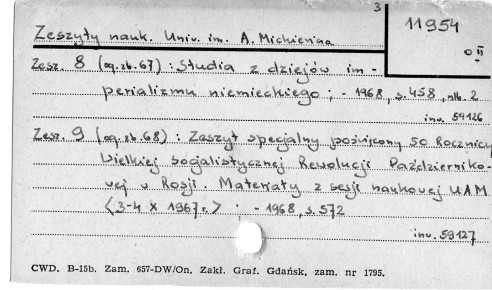 3
11954
o II
Zeszyty nauk. Univ. im. A. Mickiewicza
Zesz. 8 (og. zb. 67) : Studia z dziejów im-
perializmu niemieckiego ; - 1968, s. 458, nlb. 2
inv. 59126
Zesz. 9 (og. zb. 68) : Zeszyt specjalny poświęcony 50 Rocznicy
Wielkiej Socjalistycznej Rewolucji Październiko-
wej w Rosji. Materiały z sesji naukowej UAM
<3-4 X 1967 r.> ; - 1968, s. 572
inv. 59127
CWD. B-15b. Zam. 657-DW/On. Zakł. Graf. Gdańsk, zam. nr 1795.